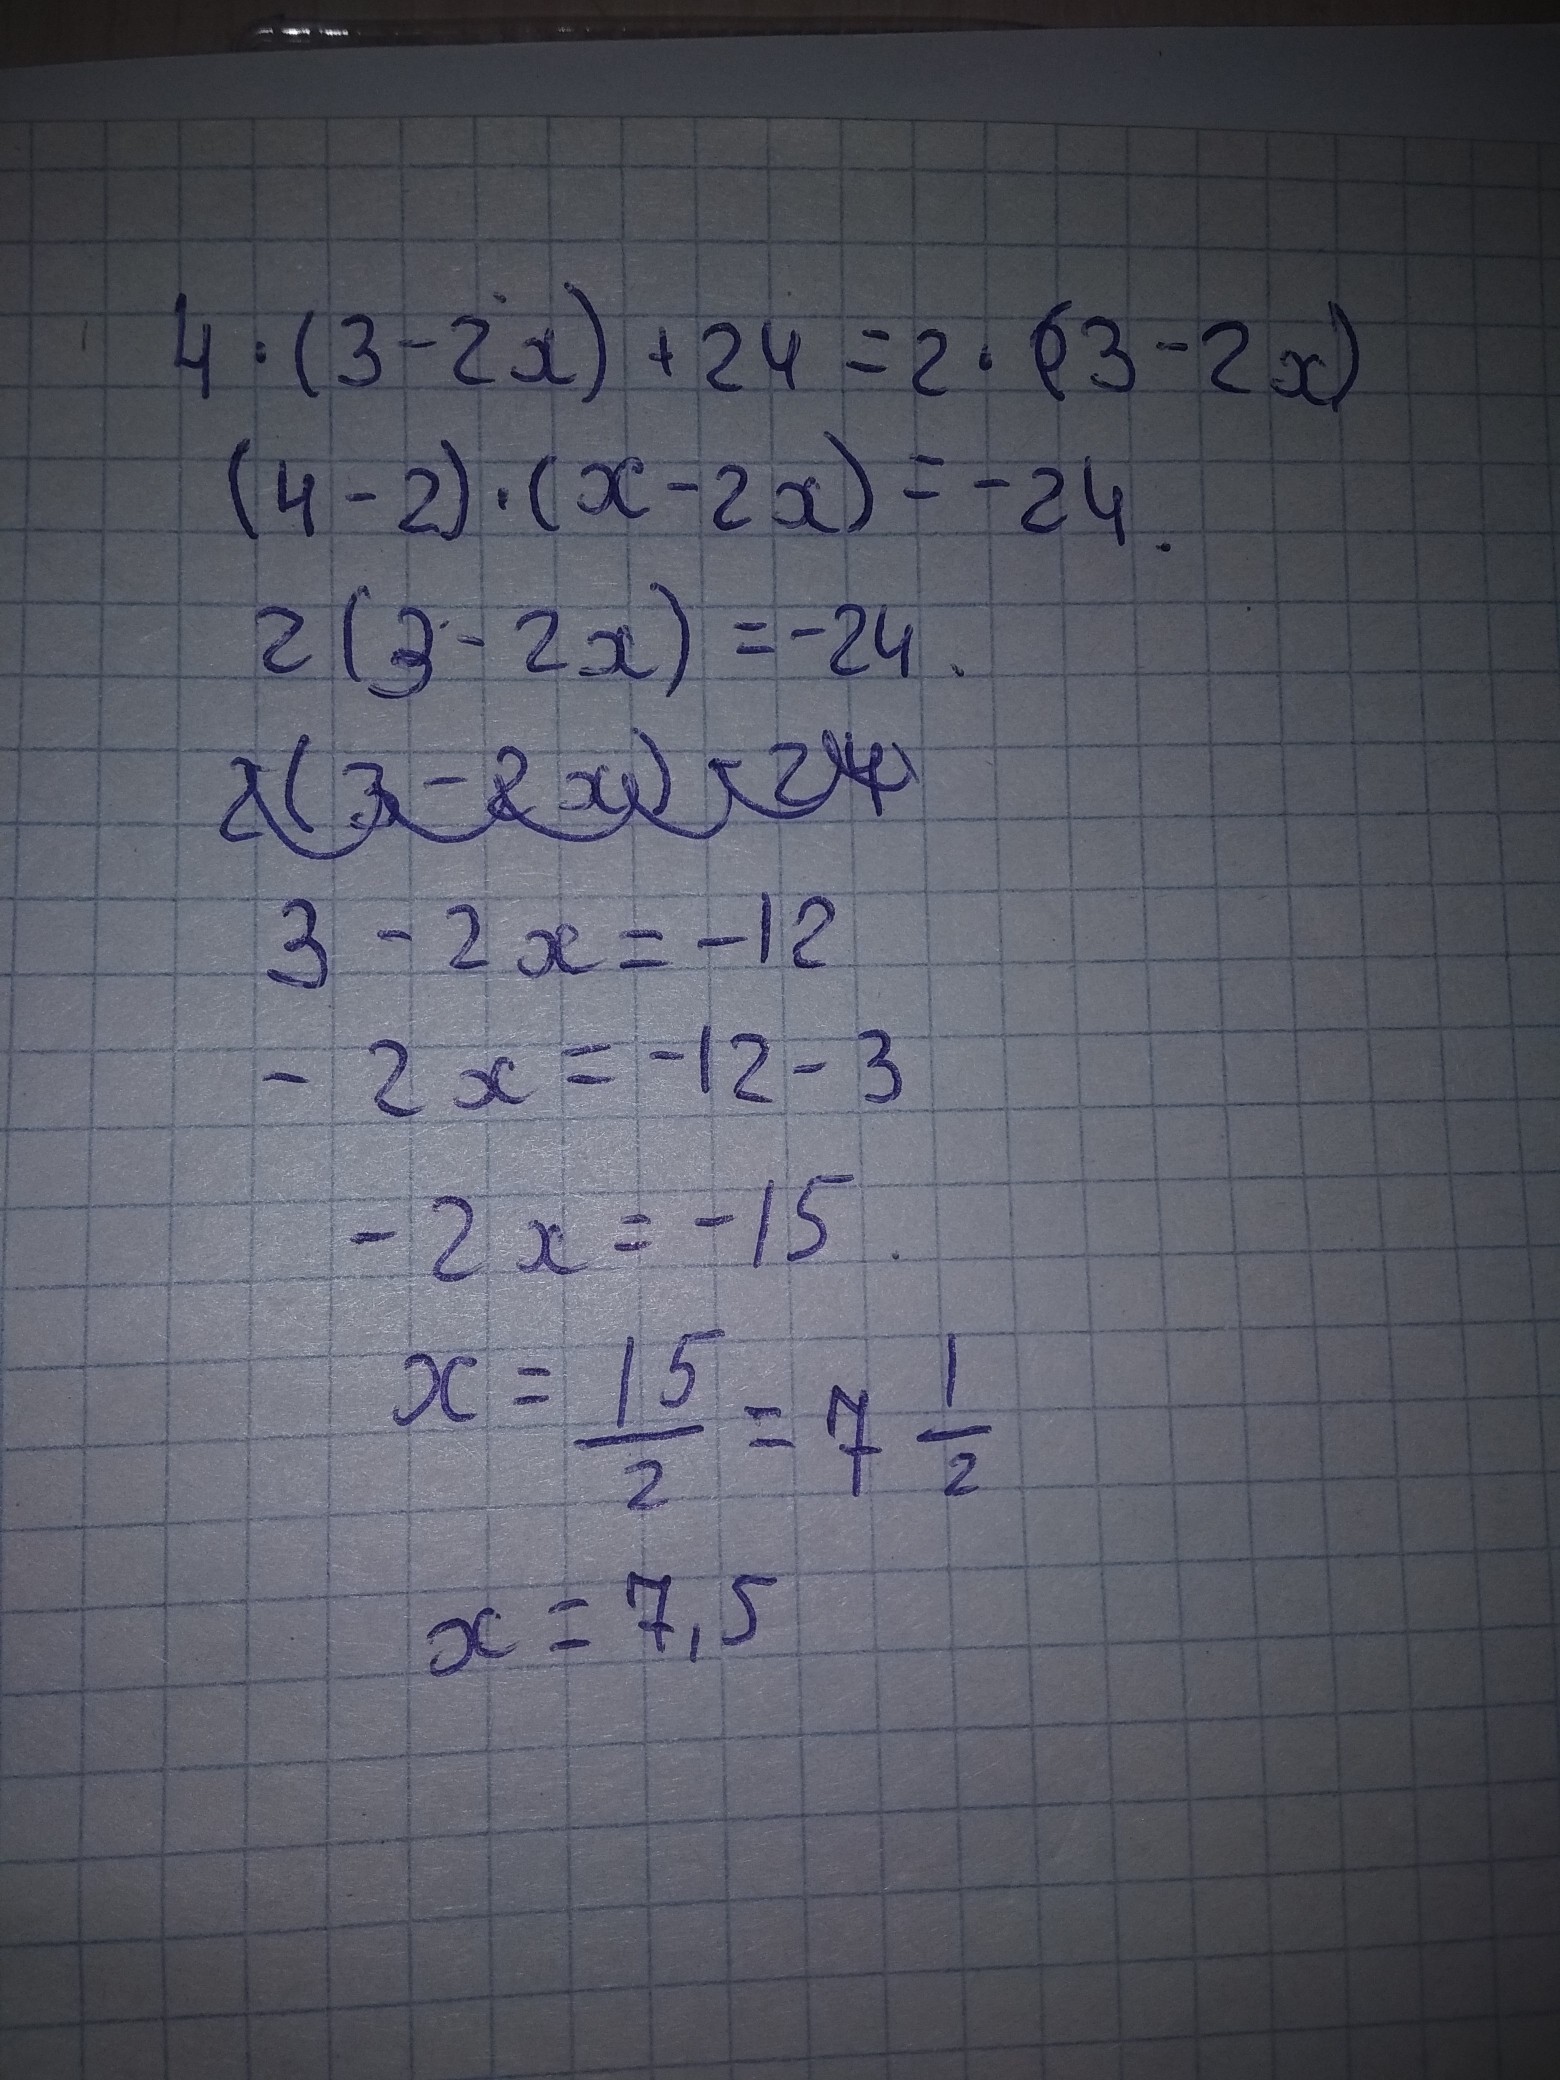 4 · (3 - 2x) + 24 = 2 · (3 - 2x)
(4 - 2) · (x - 2x) = -24.
2 (3 - 2x) = -24.
2 (3 - 2x) - 24
3 - 2x = -12
- 2x = -12 - 3
- 2x = -15
x = 15/2 = 7 1/2
x = 7,5